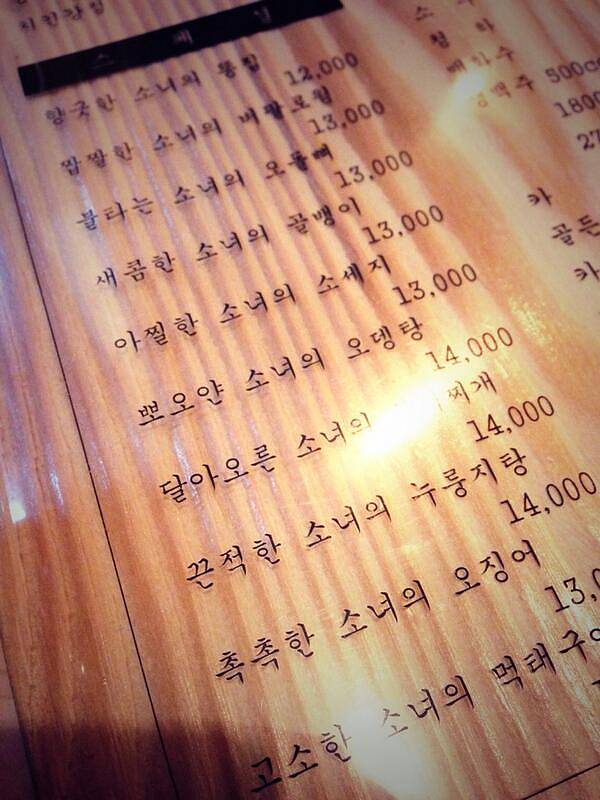 치킨랑킹
스페셜
향긋한 소녀의 똥집 12,000
짭짤한 소녀의 버팔로윙 13,000
불타는 소녀의 오돌뼈 13,000
새콤한 소녀의 골뱅이 13,000
아찔한 소녀의 소세지 13,000
뽀오얀 소녀의 오뎅탕 14,000
달아오른 소녀의 찌개 14,000
끈적한 소녀의 누룽지탕 14,000
촉촉한 소녀의 오징어
고소한 소녀의 먹태구이
소주
청하
매화수
생맥주 500cc
골든